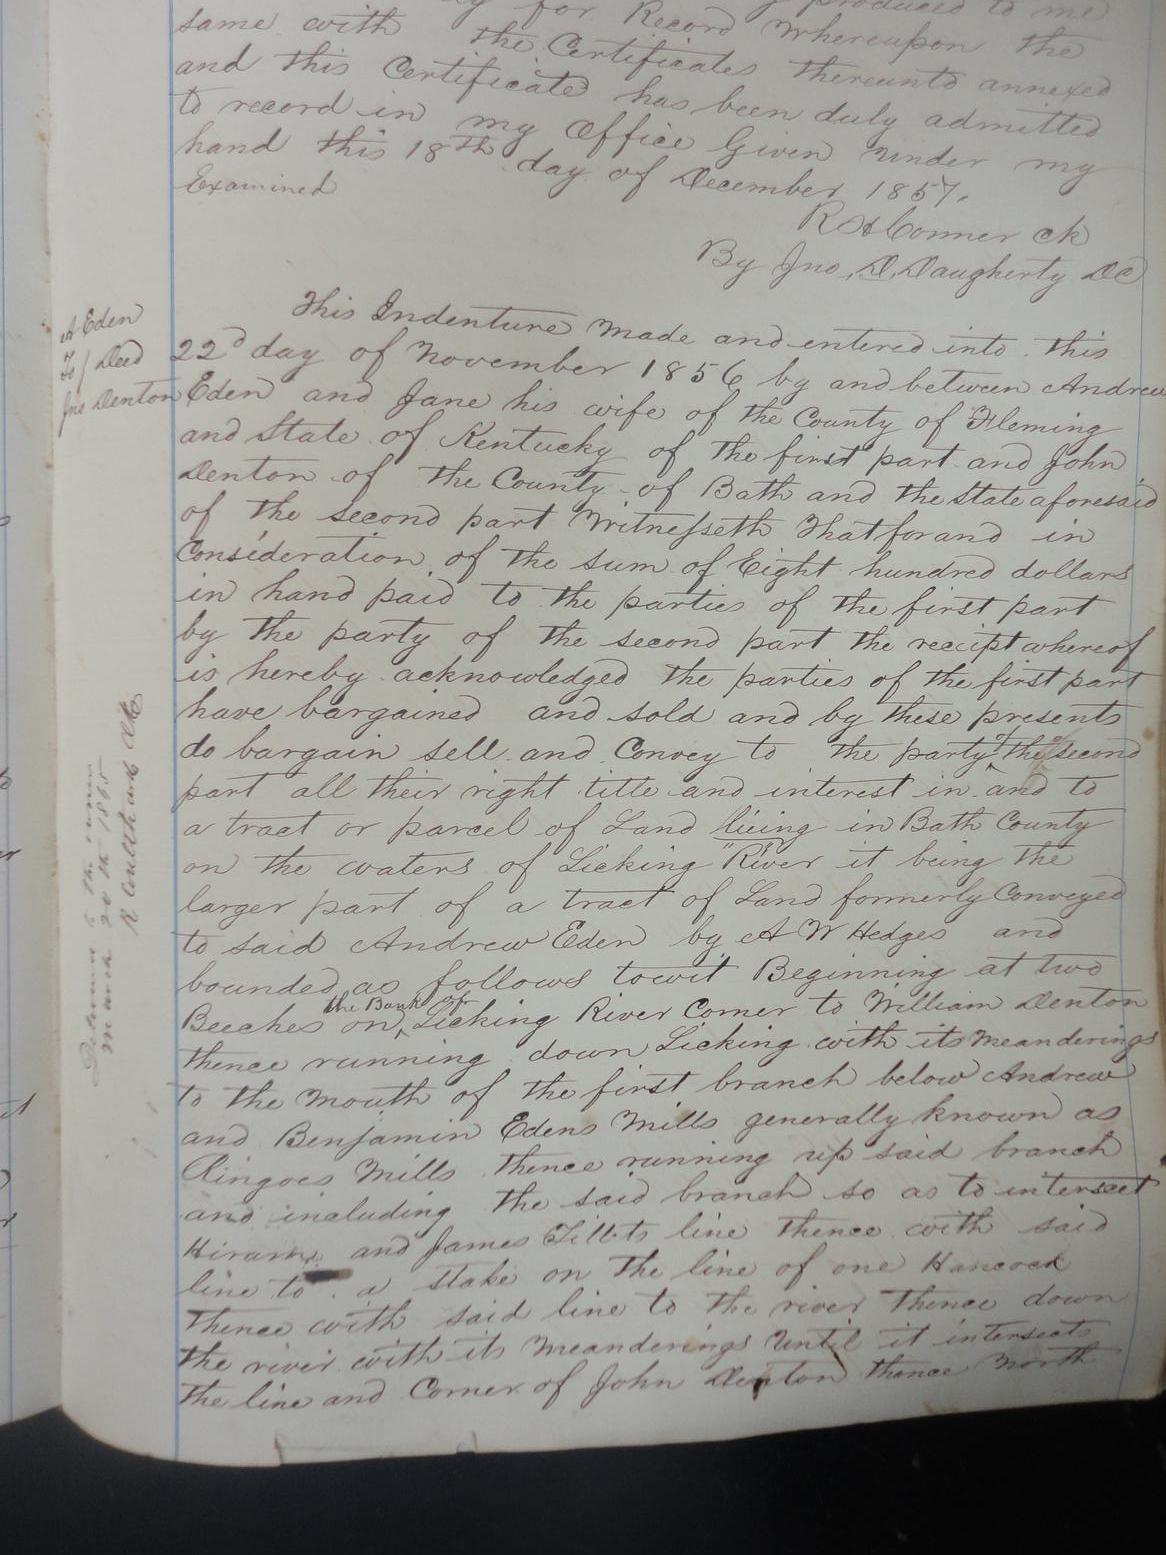 for Record Whereupon the
same with the Certificates thereunto annexed
and this Certificate has been duly admitted
to record in my Office Given under my
hand this 18th day of December 1857.
Examined
R S Conner Ck
By Jno. D. Daugherty DC
A Eden
To / Deed
Jno Denton
This Indenture Made and entered into this
22d day of November 1856 by and between Andrew
Eden and Jane his wife of the County of Fleming
and State of Kentucky of the first part and John
Denton of the County of Bath and the State aforesaid
of the second part Witnesseth That for and in
Consideration of the sum of Eight hundred dollars
in hand paid to the parties of the first part
by the party of the second part the receipt whereof
is hereby acknowledged the parties of the first part
have bargained and sold and by these presents
do bargain sell and Convey to the party of the second
part all their right title and interest in and to
a tract or parcel of Land lieing in Bath County
on the waters of Licking "River" it being the
larger part of a tract of Land formerly Conveyed
to said Andrew Eden by A W Hedges and
bounded as follows towit Beginning at two
Beeches on the Bank of Licking River Corner to William Denton
thence running down Licking with its Meanderings
to the Mouth of the first branch below Andrew
and Benjamin Edens Mills generally known as
Ringoes Mills thence running up said branch
and including the said branch so as to intersect
Hiram and James Tillets line thence with said
line to a stake on the line of one Hancock
Thence with said line to the river Thence down
the river with its Meanderings Until it intersects
the line and Corner of John Denton thence North
March 20th 1865